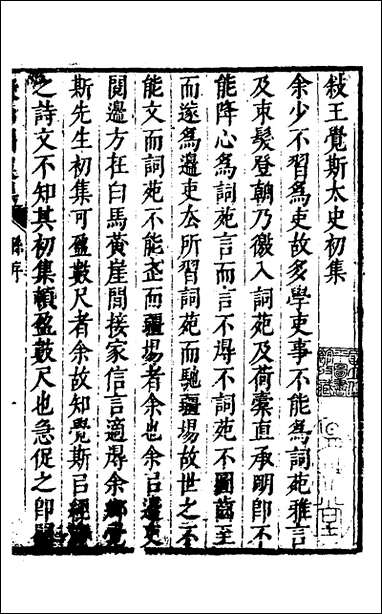 叙王覺斯太史初集
余少不習為吏故多學吏事不能為詞苑雅言
及束髮登朝乃徼入詞苑及荷橐直承明即不
能降心為詞苑言而言不得不詞苑不圖齒至
而遂為邊吏去所習詞苑而馳疆場故世之不
能文而詞苑不能　而疆場者余也余㠯邊吏
閱邊方在白馬黃崖間接家信言適得余鄉覺
斯先生初集可盈數尺者余故知覺斯㠯經
之詩文不知其初集頓盈數尺也急促之即